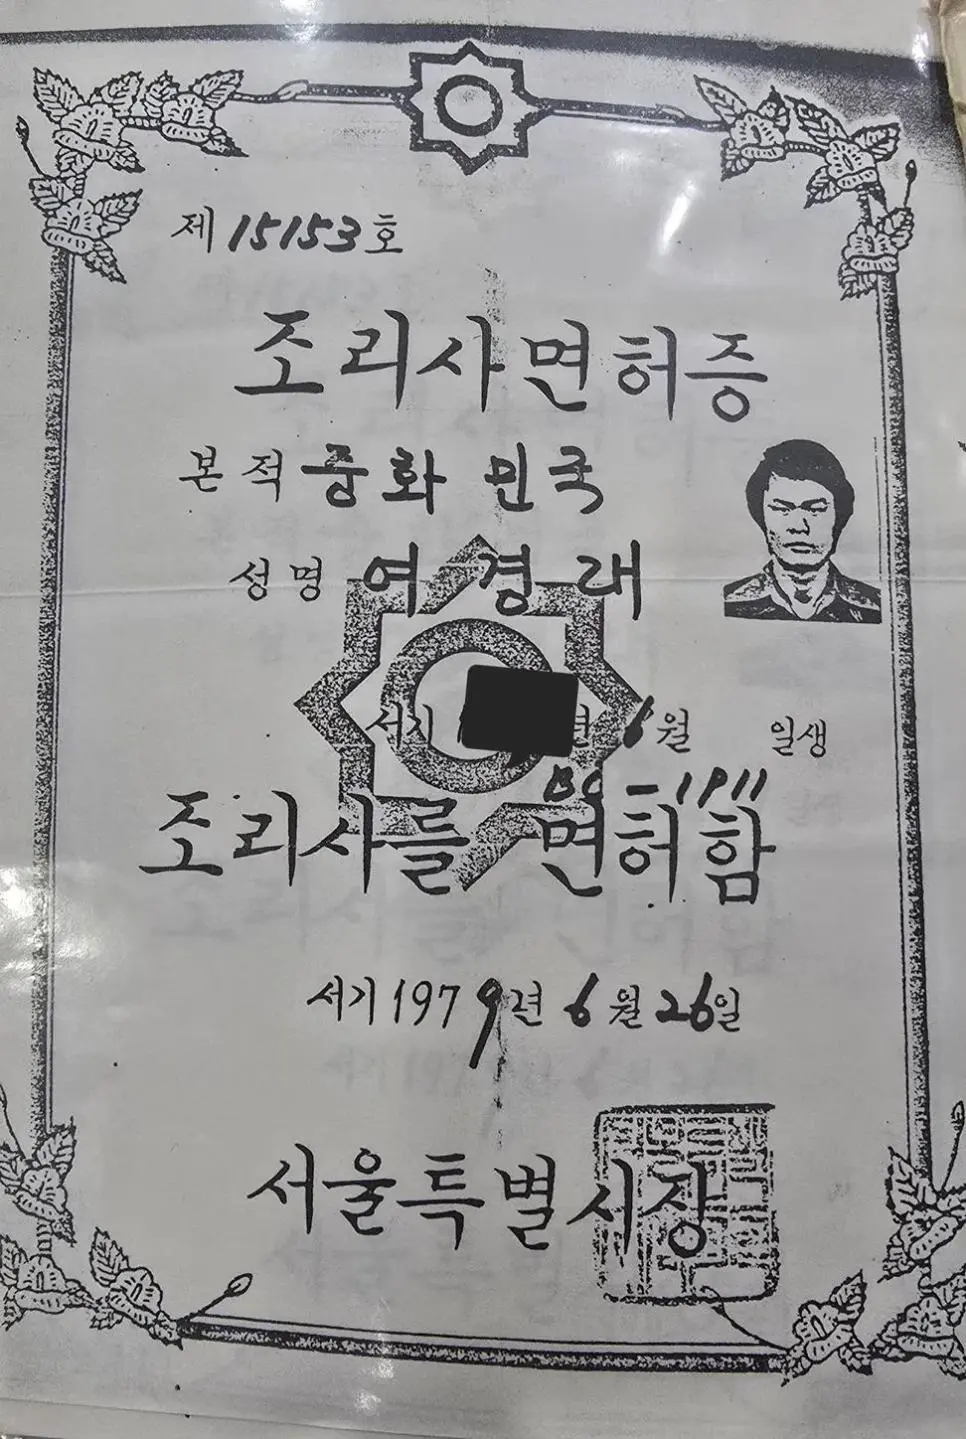 제 15153 호
조리사면허증
본적 중화 민국
성명 여 경 래
서기 년 6월 일생
조리사를 면허함
서기 1979년 6월 26일
서울특별시장